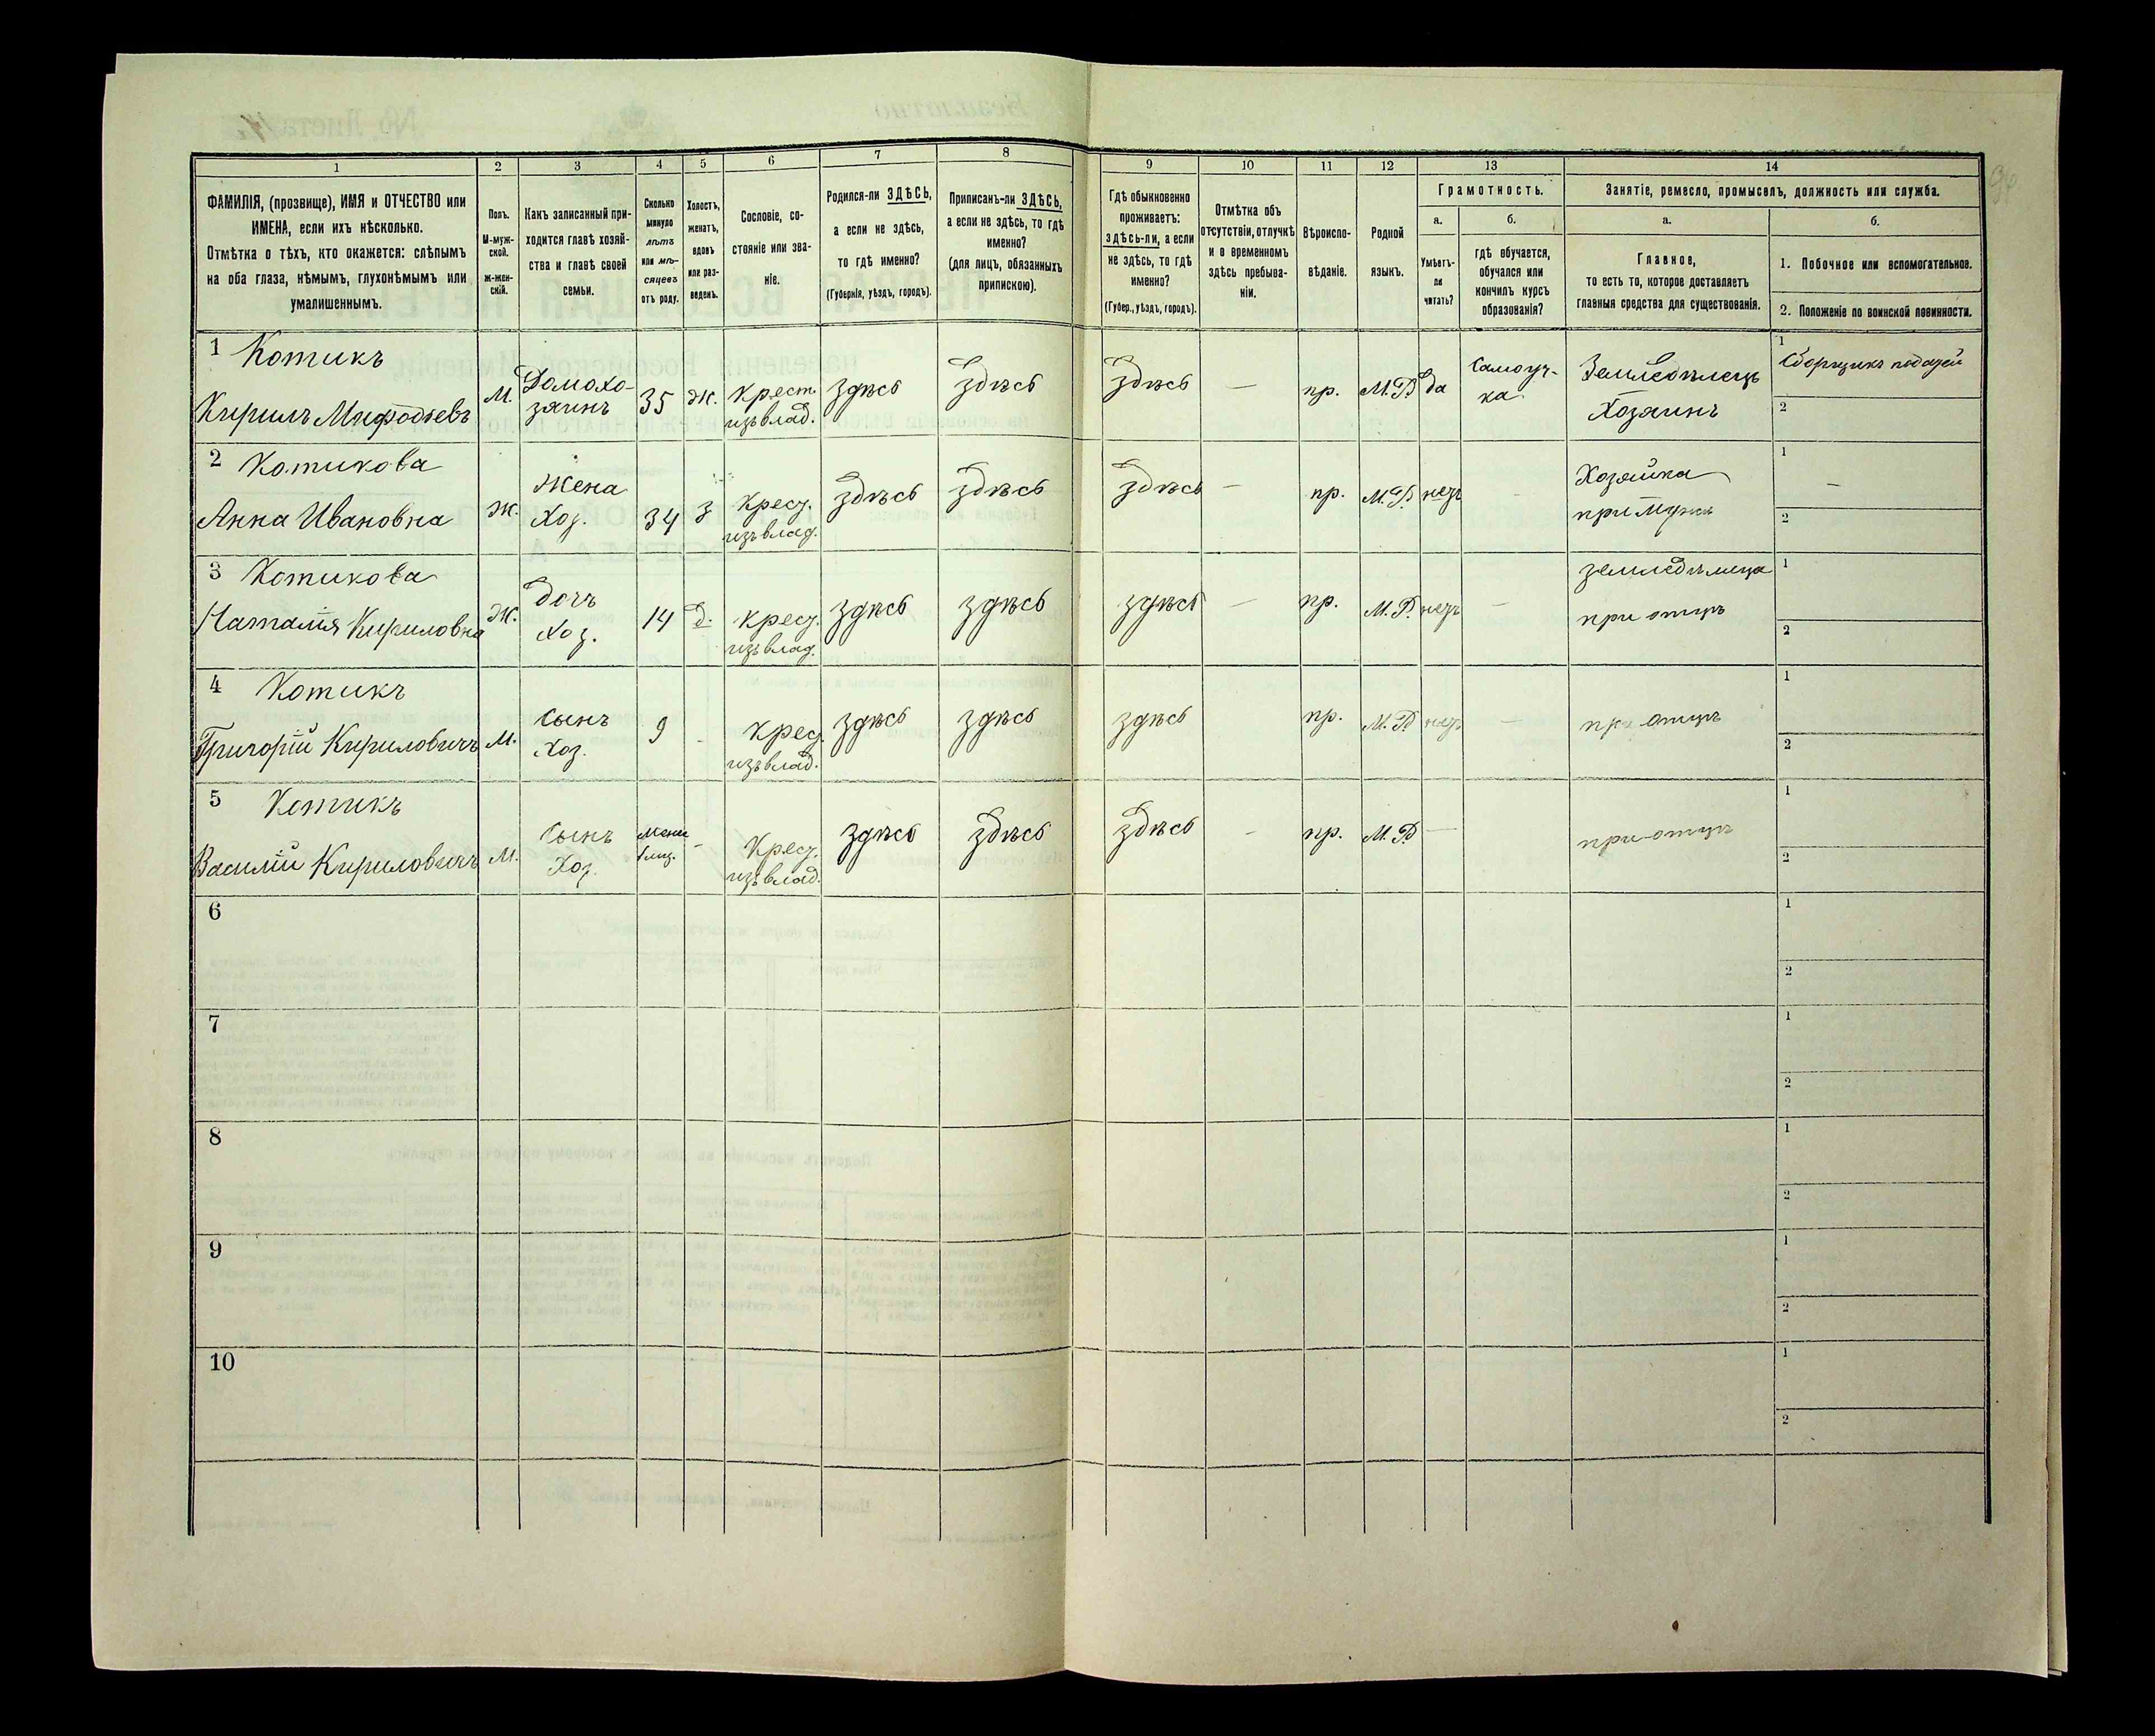 1 2 3 4 5 6 7 8 9 10 11 12 13 14
ФАМИЛІЯ, (прозвище), ИМЯ и ОТЧЕСТВО или
ИМЕНА, если ихъ нѣсколько.
Отмѣтка о тѣхъ, кто окажется: слѣпымъ
на оба глаза, нѣмымъ, глухонѣмымъ или
умалишеннымъ.
Полъ.
М-муж-
ской.
Ж-жен-
скій.
Какъ записанный при-
ходится главѣ хозяй-
ства и главѣ своей
семьи.
Сколько
минуло
лѣтъ
или мѣ-
сяцевъ
отъ роду.
Холостъ,
женатъ,
вдовъ
или раз-
веденъ.
Сословіе, со-
стояніе или зва-
ніе.
Родился-ли ЗДѢСЬ,
а если не здѣсь,
то гдѣ именно?
(Губернія, уѣздъ, городъ).
Приписанъ-ли ЗДѢСЬ,
а если не здѣсь, то гдѣ
именно?
(для лицъ, обязанныхъ
припискою).
Гдѣ обыкновенно
проживаетъ:
здѣсь-ли, а если
не здѣсь, то гдѣ
именно?
(Губер., уѣздъ, городъ).
Отмѣтка объ
отсутствіи, отлучкѣ
и о временномъ
здѣсь пребыва-
ніи.
Вѣроиспо-
вѣданіе.
Родной
языкъ.
Грамотность.
а.
Умѣетъ-
ли
читать?
б.
гдѣ обучается,
обучался или
кончилъ курсъ
образованія?
Занятіе, ремесло, промыселъ, должность или служба.
а.
Главное,
то есть то, которое доставляетъ
главныя средства для существованія.
б.
1. Побочное или вспомогательное.
2. Положеніе по воинской повинности.
1 Котикъ
Кирилъ Мифодіевъ
М.
Домохо-
зяинъ
35
Ж.
Крест.
изъ влад.
здѣсь
здѣсь
здѣсь
—
пр.
М.Р.
да
Самоуч-
ка
Земледѣлецъ
Хозяинъ
1
Сборщикъ податей
2
2 Котикова
Анна Ивановна
Ж.
Жена
Хоз.
34
З
Крест.
изъ влад.
здѣсь
здѣсь
здѣсь
—
пр.
М.Р.
нетъ
Хозяйка
при мужѣ
1
—
2
3 Котикова
Наталія Кириловна
Ж.
дочь
Хоз.
14
д.
крест.
изъ влад.
здѣсь
здѣсь
здѣсь
—
пр.
М.Р.
нетъ
—
земледѣлица
при отцѣ
1
2
4 Котикъ
Григорій Кириловичъ
М.
Сынъ
Хоз.
9
-
Крест.
изъ влад.
здѣсь
здѣсь
здѣсь
пр.
М.Р.
нетъ
—
при отцѣ
1
2
5 Котикъ
Василій Кириловичъ
М.
Сынъ
Хоз.
-
Крест.
изъ влад.
здѣсь
здѣсь
здѣсь
—
пр.
М.Р.
—
при отцѣ
1
2
6
1
2
7
1
2
8
1
2
9
1
2
10
1
2